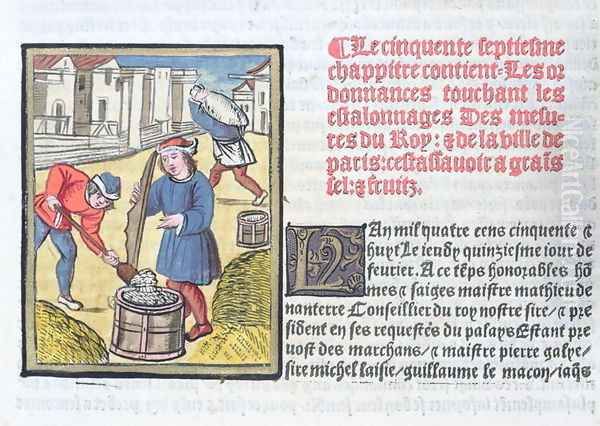 ¶Le cinquente septiesme
chappitre contient⸗Les or
donnances touchant les
estalonnages Des mesu⸗
res du Roy: ⁊ de la ville de
paris: cestassauoir a grais
sel: ⁊ fruitz.
LAn mil quatre cens cinquente ⁊
huyt Le ieudy quinziesme iour de
feurier. A ce tēps honorables hō
mes ⁊ saiges maistre mathieu de
nanterre Conseillier du roy nostre sire/ ⁊ pre
sident en ses requestes du palays Estant pre
uost des marchans/ ⁊ maistre pierre galye/
sire michel laisie/guillaume le macon/iaq̄s